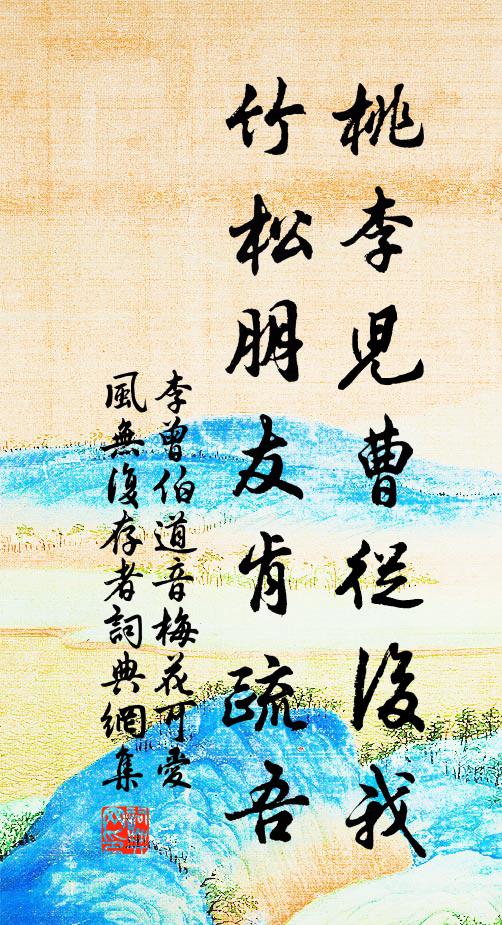 桃李兒曹從後我
竹松朋友肯疏吾
李曾伯道音梅花可愛
風無復存者詞典網集